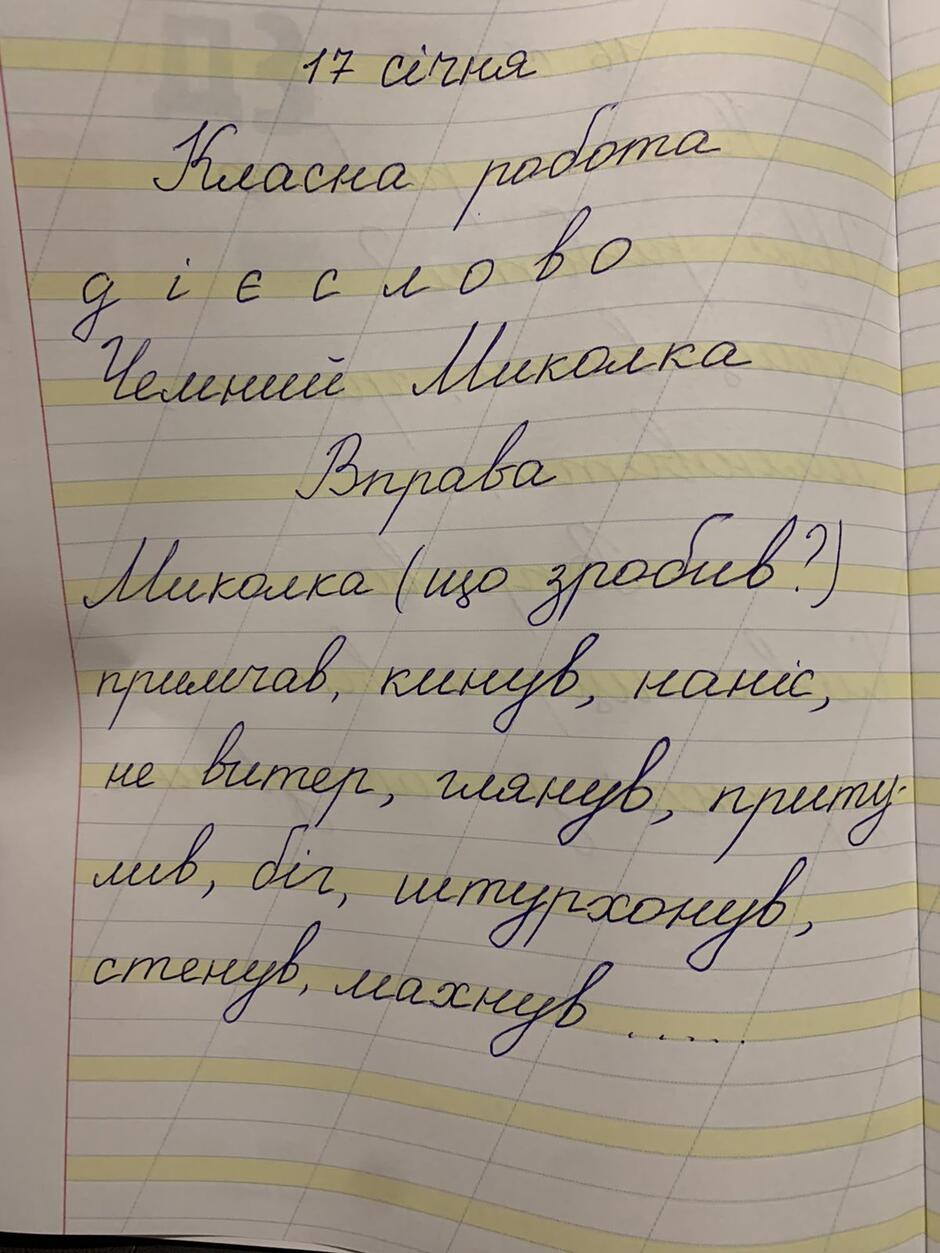 17 січня
Класна робота
д і є с л о в о
Чемний Миколка
Вправа
Миколка (що зробив?)
примчав, кинув, наніс,
не витер, глянув, приту-
лив, біг, штурхонув,
стенув, махнув .....